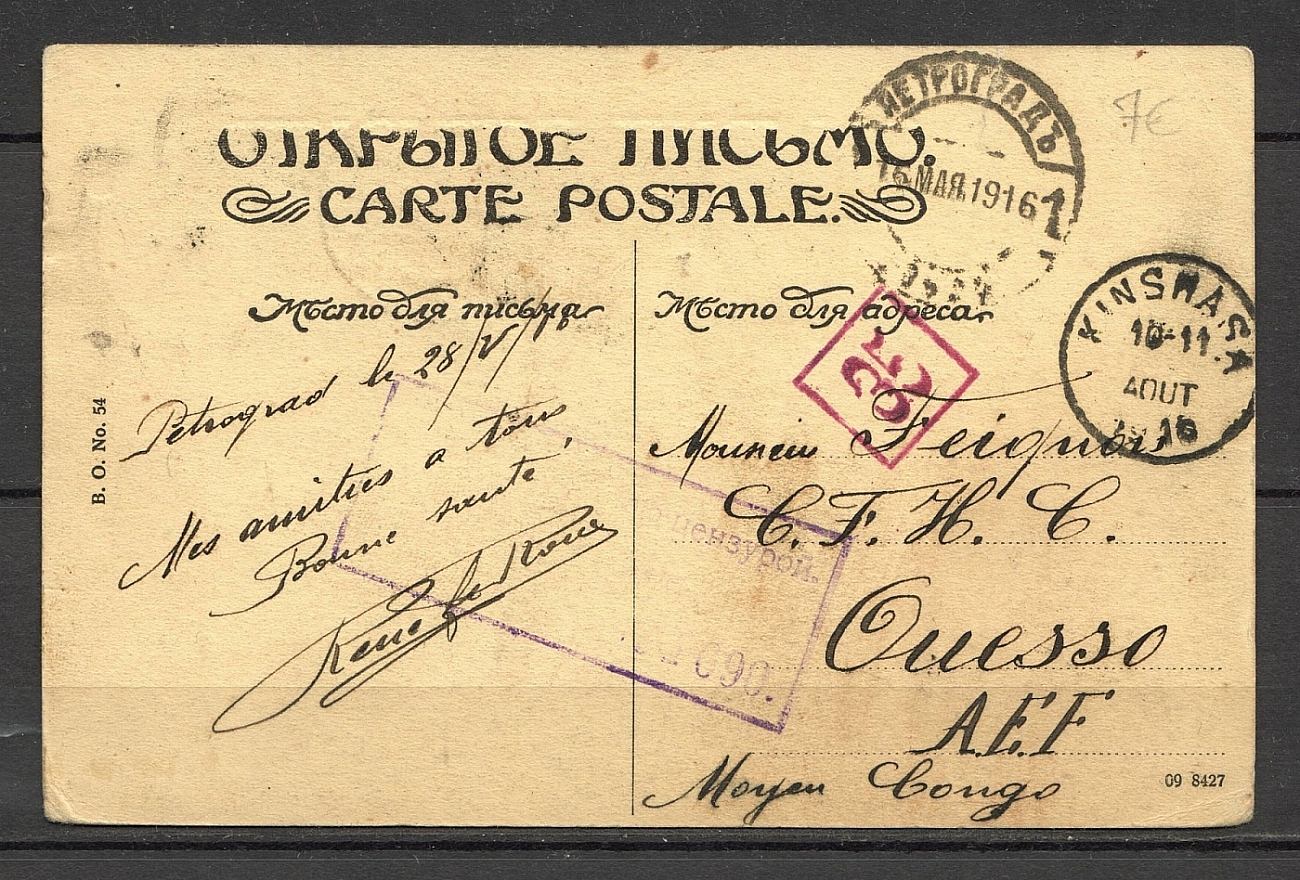 ОТКРЫТОЕ ПИСЬМО.
CARTE POSTALE.
ПЕТРОГРАДЪ
1
МАЯ.1916
7€
KINSHASA
10-11
AOUT
16
Мѣсто для письма
Petrograd le 28/V/16
Mes amitiés a tous
Bonne santé,
René
B. O. No. 54
Мѣсто для адреса
Monsieur
C. F. H. C.
Ouesso
A.E.F
Moyen Congo
цензурой.
690.
09 8427